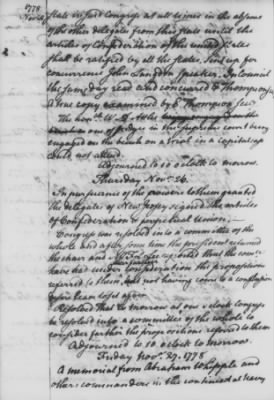 1778
Nov.
state in said Congress at all times in the absence
of the other delegates from this state until the
articles of Confederation of the united States
shall be ratified by all the states, Sent up for
concurrence John Langdon speaker. In Council
the same day read and concurred E Thompson Secy
a true copy examined by E Thompson Secy
The honble W
one of Judges in the supreme court being
engaged on the bench on a trial in a capital cause
could not attend.
Adjourned to 10 o clock to morrow.
Thursday Nov. 26.
In pursuance of the powers to them granted
the delegates of New Jersey signed the articles
of Confederation & perpetual union.
Congress was resolved into a committee of the
whole and after some time the president resumed
the chair and Mr reported that the comee
have had under consideration the propositions
referred to them, but not having come to a conclusion
desire leave to sit again
Resolved that to morrow at one o clock congress
be resolved into a committee of the whole to
consider farther the propositions referred to them
Adjourned to 10 o clock to morrow.
Friday Nov. 27. 1778
A memorial from Abraham Whipple and
other commanders in the continental navy